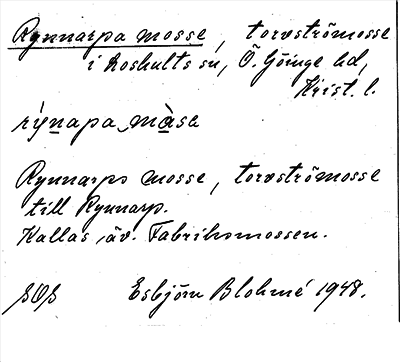 Rynnarpa mosse, torvströmosse
i Loshults sn, Ö. Göinge hd,
Krist. l.
rýnapa màsa
Rynnarps mosse, torvströmosse
till Rynnarp.
Kallas äv. Fabriksmossen.
SOS Esbjörn Blohmé 1948.